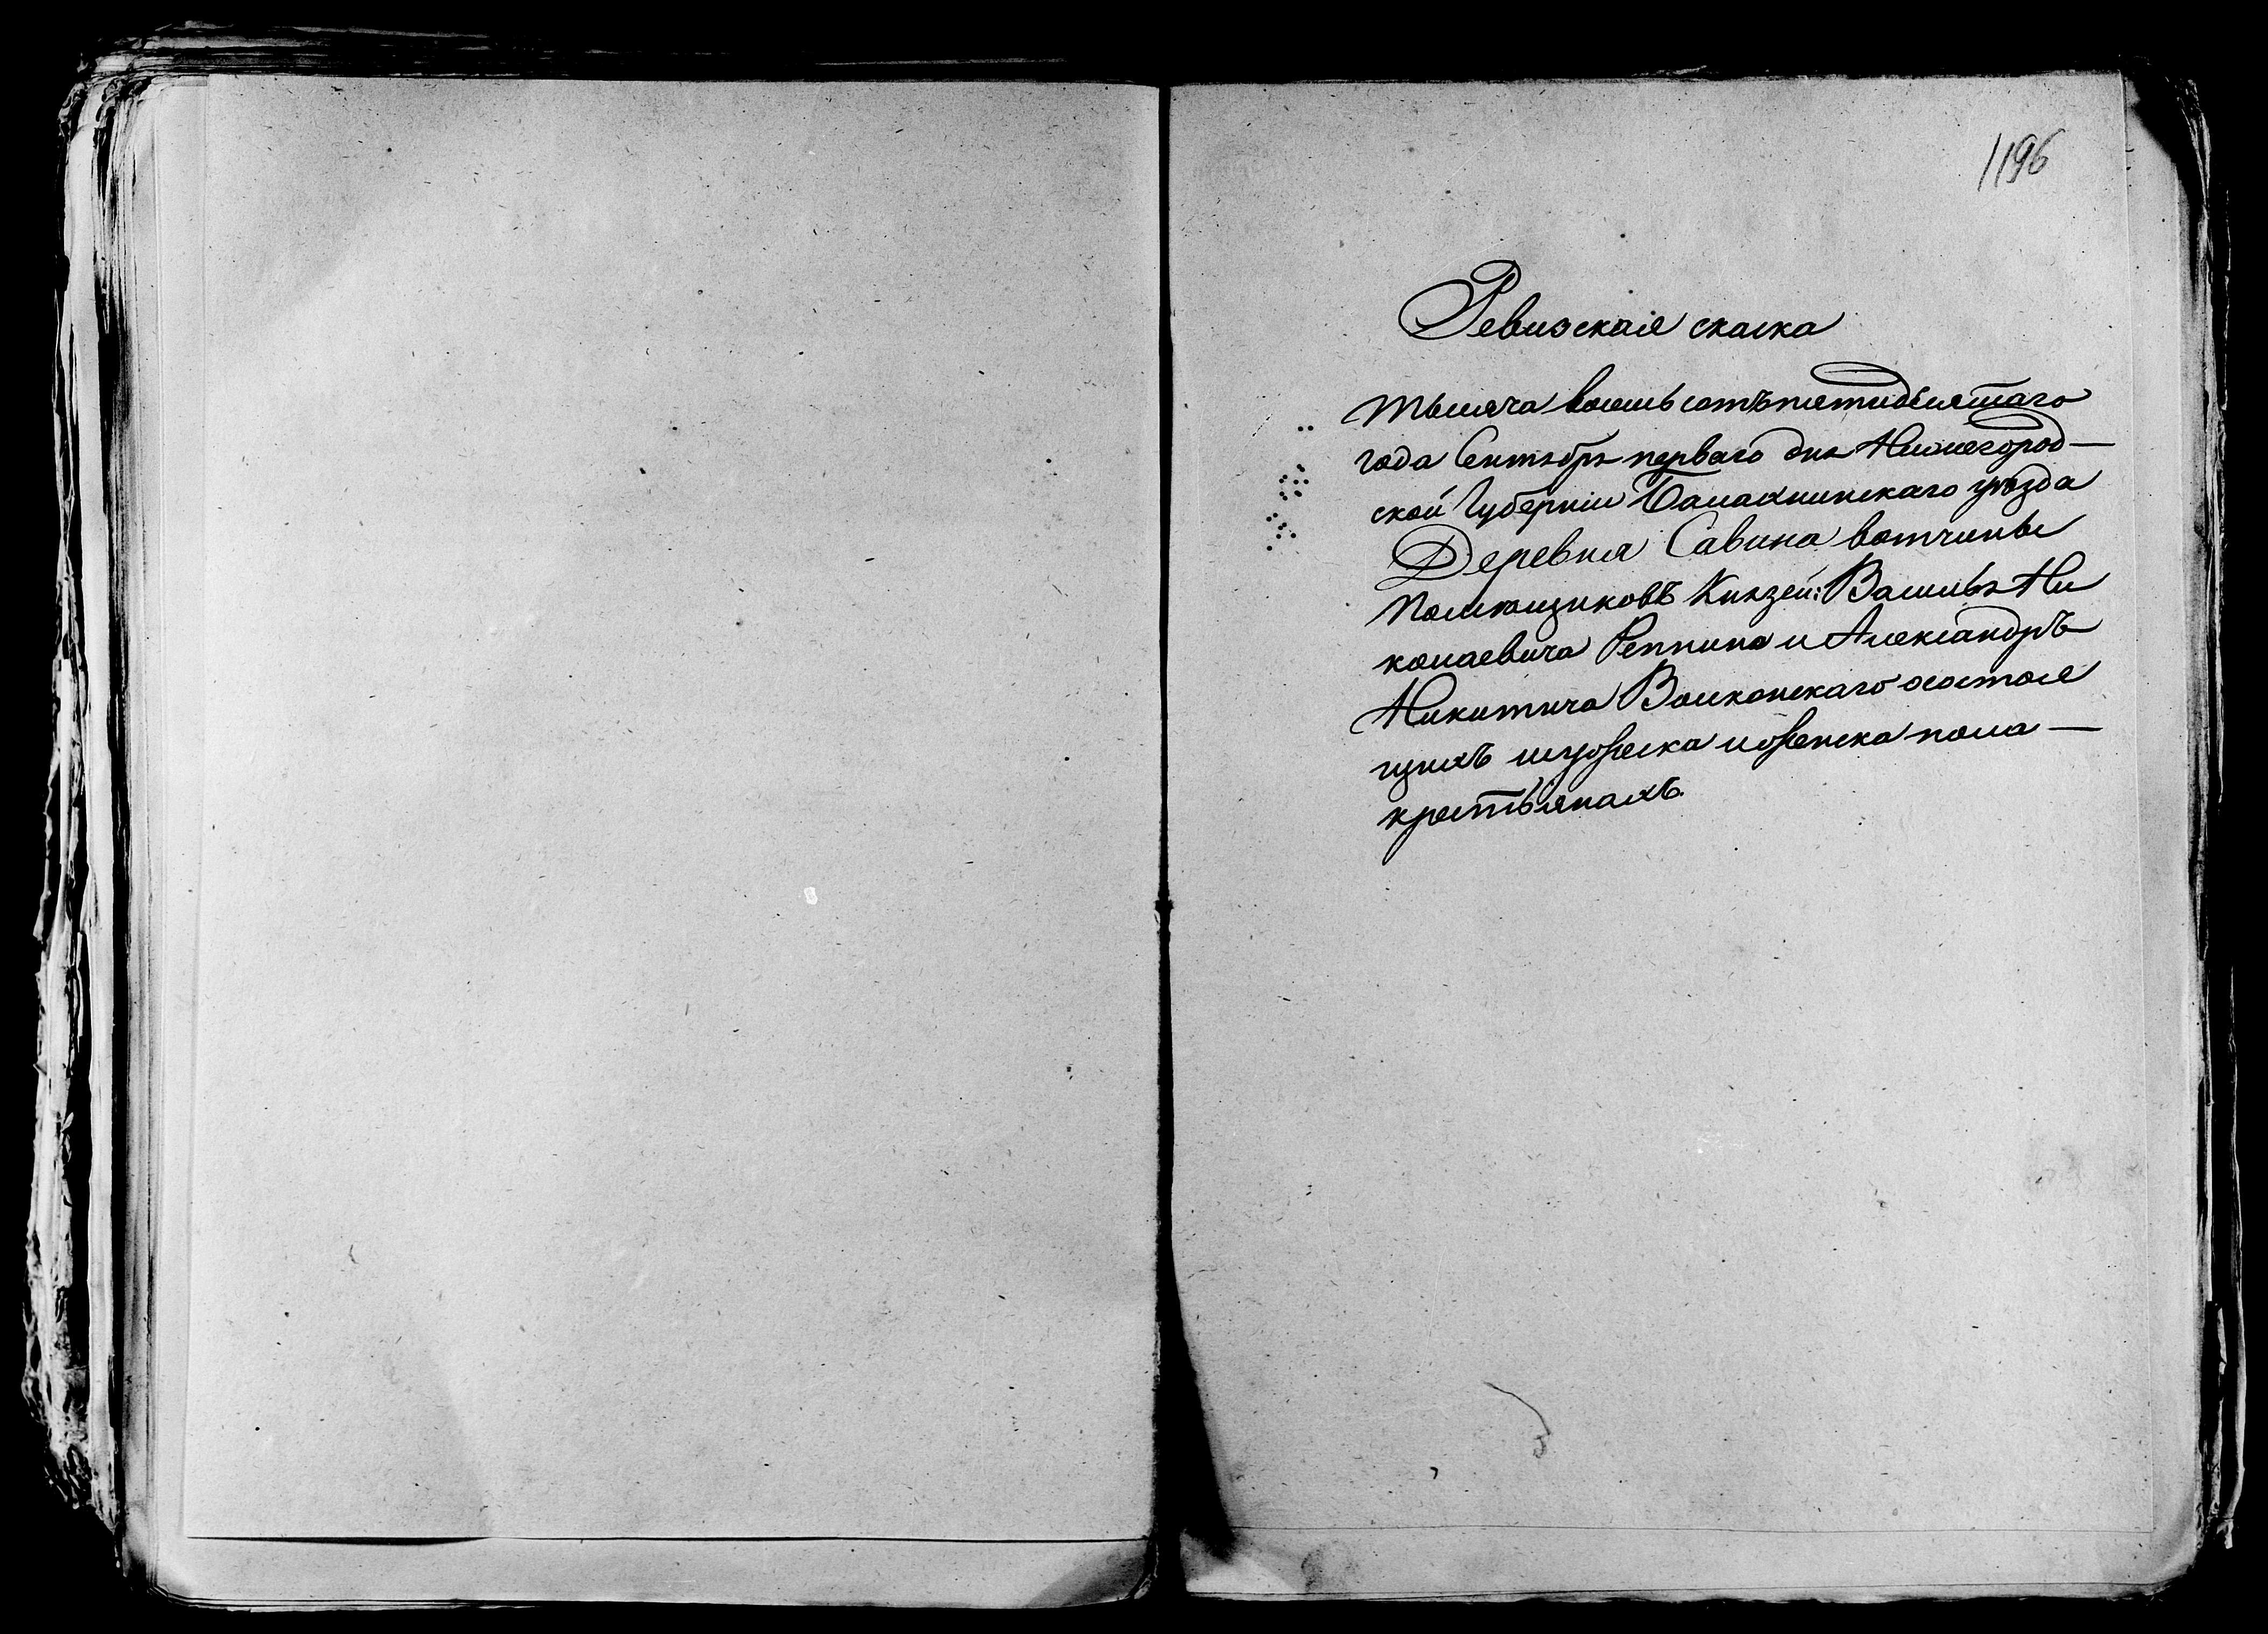 1196
Ревизская скаска
тысяча восемь сотъ пятидесятаго
года Сентября перваго дня Нижегород—
ской Губерніи Балахнинскаго уѣзда
Деревня Савина вотчины
Помѣщиковъ Князей: Василья Ни
колаевича Репнина и Александръ
Никитича Волконскаго осостоя
щихъ мужеска и женска пола—
крестьянахъ